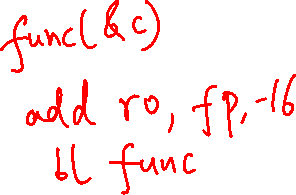 func(&c)
add ro, fp, -16
bl func